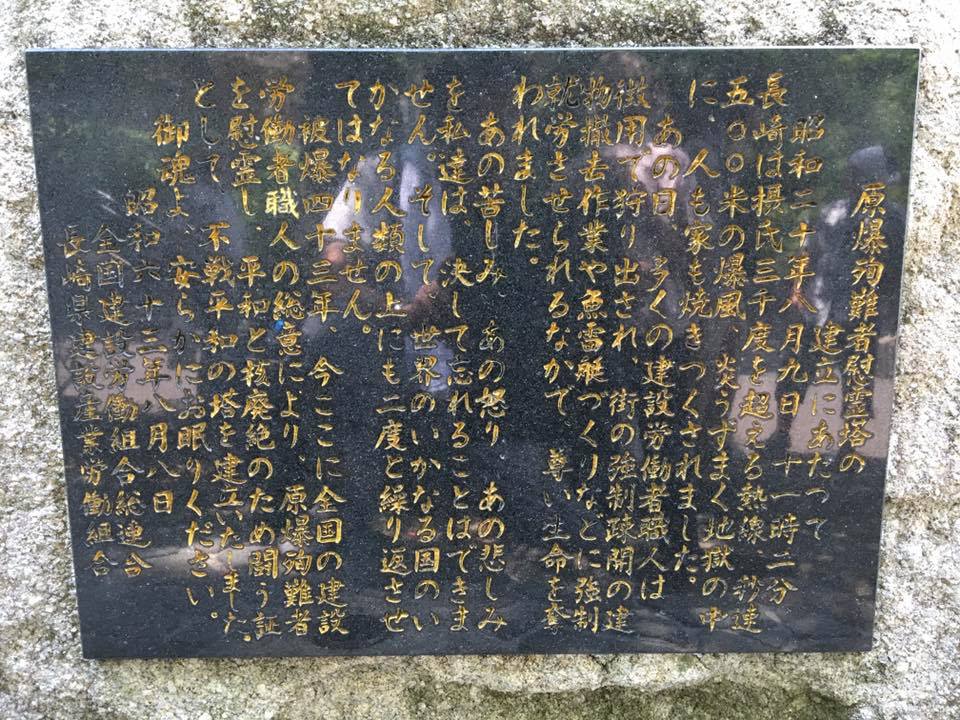 原爆殉難者慰霊塔の
建立にあたって
昭和二十年八月九日 十一時二分
長崎は摂氏三千度を超える熱線、秒速
五〇〇米の爆風、炎うずまく地獄の中
に、人も家も焼きつくされました。
あの日 多くの建設労働者職人は
徴用で狩り出され、街の強制疎開の建
物撤去作業や魚雷艇づくりなどに強制
就労させられるなかで、尊い生命を奪
われました。
あの苦しみ あの怒り あの悲しみ
を私達は、決して忘れることはできま
せん。そして、世界のいかなる国のい
かなる人類の上にも二度と繰り返させ
てはなりません。
被爆四十三年、今ここに全国の建設
労働者職人の総意により、原爆殉難者
を慰霊し、平和と核廃絶のため闘う証
として 不戦平和の塔を建立いたしました。
御魂よ、安らかにお眠りください。
昭和六十三年八月八日
全国建設労働組合総連合
長崎県建設産業労働組合